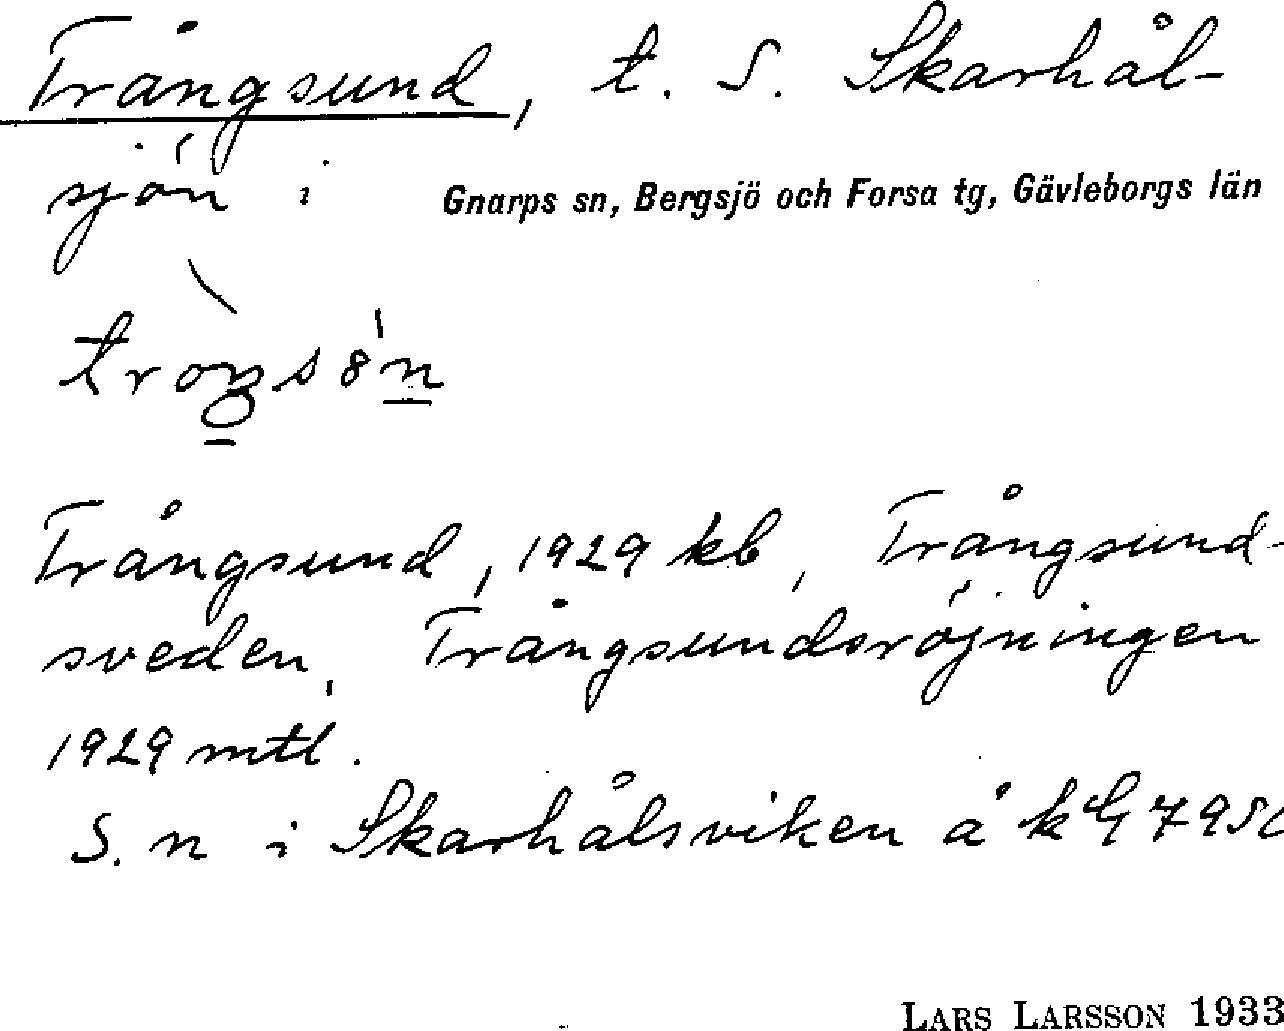 Trångsund, t. S. Skarhål-
sjön i Gnarps sn, Bergsjö och Forsa tg, Gävleborgs län
Trångsund, 1929 kb, Trångsund-
sveden, Trångsundsröjningen
1929 mtl.
S. n i Skarhålsviken å k
LARS LARSSON 1933